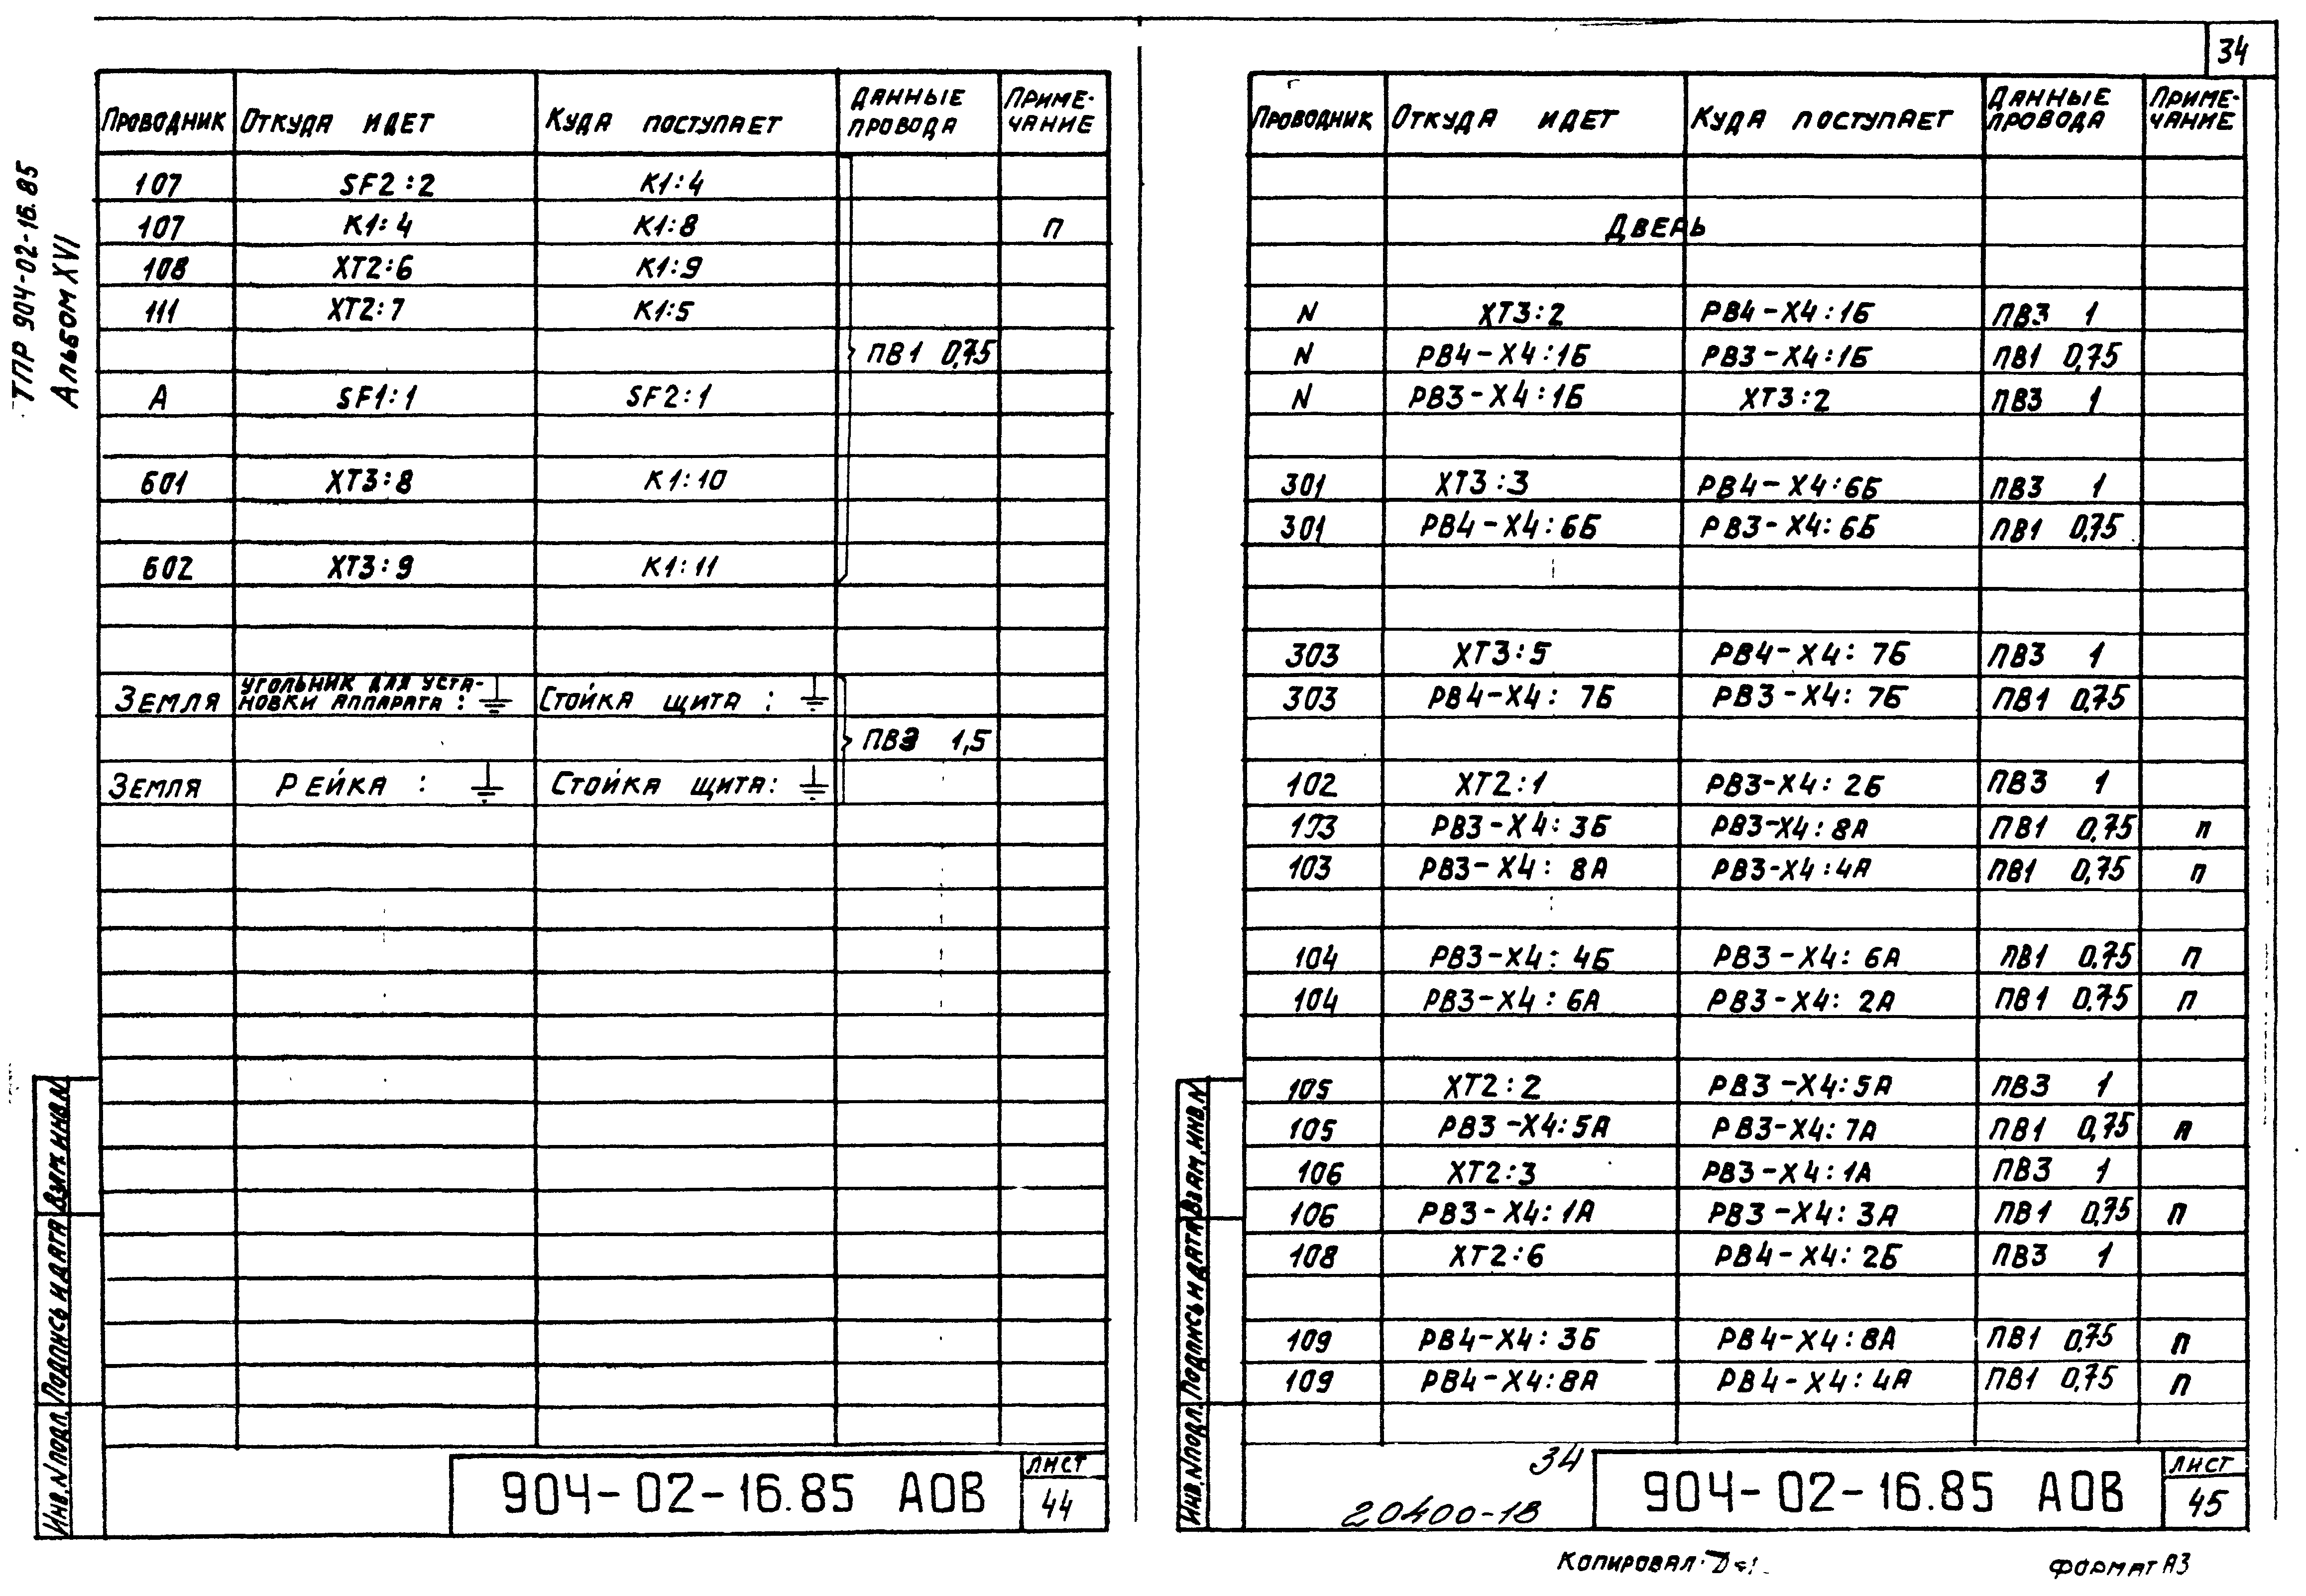 34
ТПР 904-02-16.85
Альбом XVI
Проводник Откуда идет Куда поступает Данные провода Приме-чание
107 SF2:2 К1:4
107 К1:4 К1:8 П
108 ХТ2:6 К1:9
111 ХТ2:7 К1:5
ПВ1 0,75
А SF1:1 SF2:1
601 ХТ3:8 К1:10
602 ХТ3:9 К1:11
Земля Угольник для уста-новки аппарата : Стойка щита :
ПВ3 1,5
Земля Рейка : Стойка щита:
Инв.N подл. Подпись и дата Взам.инв.N
904-02-16.85 АОВ
Лист
44
Проводник Откуда идет Куда поступает Данные провода Приме-чание
Дверь
N ХТ3:2 РВ4-Х4:1Б ПВ3 1
N РВ4-Х4:1Б РВ3-Х4:1Б ПВ1 0,75
N РВ3-Х4:1Б ХТ3:2 ПВ3 1
301 ХТ3:3 РВ4-Х4:6Б ПВ3 1
301 РВ4-Х4:6Б РВ3-Х4:6Б ПВ1 0,75
303 ХТ3:5 РВ4-Х4:7Б ПВ3 1
303 РВ4-Х4:7Б РВ3-Х4:7Б ПВ1 0,75
102 ХТ2:1 РВ3-Х4:2Б ПВ3 1
103 РВ3-Х4:3Б РВ3-Х4:8А ПВ1 0,75 п
103 РВ3-Х4:8А РВ3-Х4:4А ПВ1 0,75 п
104 РВ3-Х4:4Б РВ3-Х4:6А ПВ1 0,75 П
104 РВ3-Х4:6А РВ3-Х4:2А ПВ1 0,75 П
105 ХТ2:2 РВ3-Х4:5А ПВ3 1
105 РВ3-Х4:5А РВ3-Х4:7А ПВ1 0,75 п
106 ХТ2:3 РВ3-Х4:1А ПВ3 1
106 РВ3-Х4:1А РВ3-Х4:3А ПВ1 0,75 П
108 ХТ2:6 РВ4-Х4:2Б ПВ3 1
109 РВ4-Х4:3Б РВ4-Х4:8А ПВ1 0,75 п
109 РВ4-Х4:8А РВ4-Х4:4А ПВ1 0,75 П
Инв.N подл. Подпись и дата Взам.инв.N
34
20400-18
904-02-16.85 АОВ
Лист
45
Копировал:
Формат А3